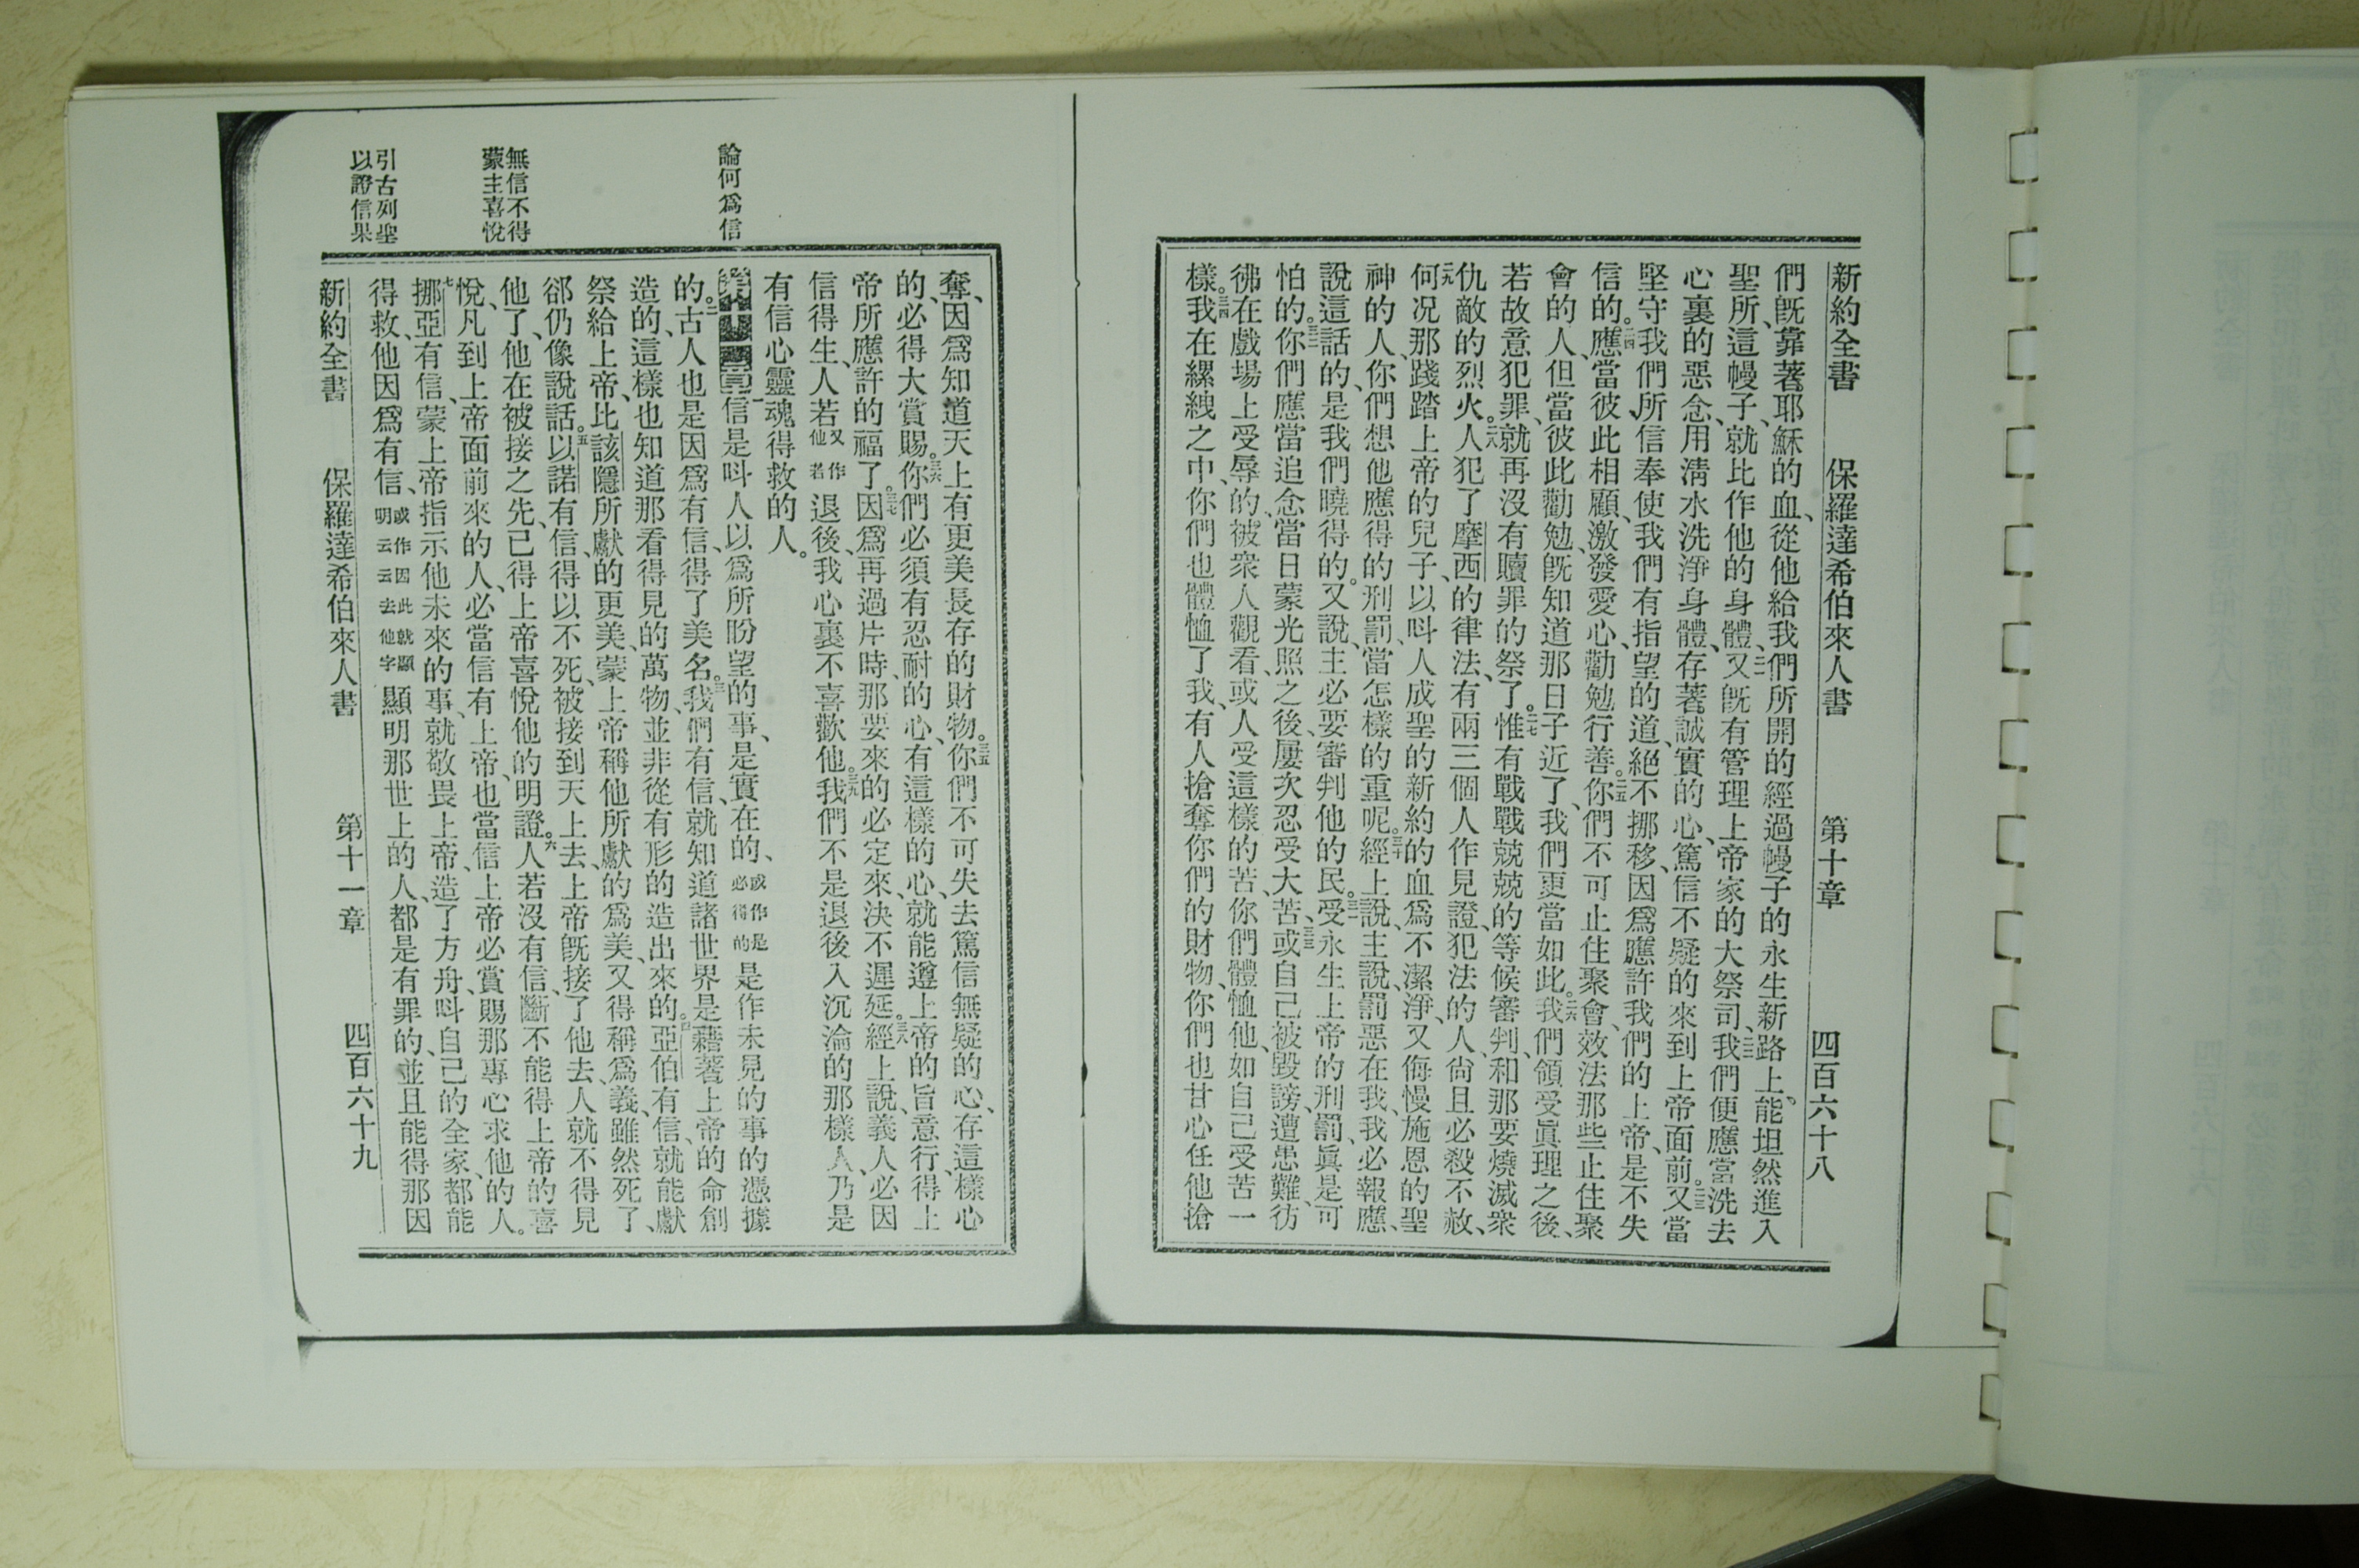 新約全書 保羅達希伯來人書 第十章 四百六十八
們旣靠著耶穌的血、從他給我們所開的經過幔子的永生新路上、能坦然進入
聖所、這幔子、就比作他的身體、二一又旣有管理上帝家的大祭司、二二我們便應當洗去
心裏的惡念、用淸水洗淨身體、存著誠實的心、篤信不疑的來到上帝面前。二三又當
堅守我們所信奉使我們有指望的道、絕不挪移、因爲應許我們的上帝、是不失
信的。二四應當彼此相顧、激發愛心、勸勉行善。二五你們不可止住聚會、效法那些止住聚
會的人、但當彼此勸勉、旣知道那日子近了、我們更當如此。二六我們領受眞理之後、
若故意犯罪、就再沒有贖罪的祭了。二七惟有戰戰兢兢的等候審判、和那要燒滅衆
仇敵的烈火。二八人犯了摩西的律法、有兩三個人作見證、犯法的人、尙且必殺不赦、
二九何况那踐踏上帝的兒子、以呌人成聖的新約的血爲不潔淨、又侮慢施恩的聖
神的人、你們想他應得的刑罰、當怎樣的重呢。三十經上說、主說、罰惡在我、我必報應、
說這話的、是我們曉得的。又說、主必要審判他的民。三一受永生上帝的刑罰、眞是可
怕的。三二你們應當追念當日蒙光照之後、屢次忍受大苦、三三或自己被毀謗、遭患難、彷
彿在戲場上受辱的、被衆人觀看、或人受這樣的苦、你們體恤他、如自己受苦一
樣。三四我在縲絏之中、你們也體恤了我、有人搶奪你們的財物、你們也甘心任他搶
奪、因爲知道天上有更美長存的財物。三五你們不可失去篤信無疑的心、存這樣心
的、必得大賞賜。三六你們必須有忍耐的心、有這樣的心、就能遵上帝的旨意行、得上
帝所應許的福了。三七因爲再過片時、那要來的必定來、決不遲延。三八經上說、義人必因
信得生、人若又作他若退後、我心裏不喜歡他。三九我們不是退後入沉淪的那樣人、乃是
有信心靈魂得救的人。
論何爲信
第十一章一信是呌人以爲所盼望的事、是實在的、或作是必得的是作未見的事的憑據
的。二古人也是因爲有信、得了美名。三我們有信、就知道諸世界是藉著上帝的命創
造的、這樣也知道那看得見的萬物、並非從有形的造出來的。四亞伯有信、就能獻
祭給上帝、比該隱所獻的更美、蒙上帝稱他所獻的爲美、又得稱爲義、雖然死了、
郤仍像說話。五以諾有信、得以不死、被接到天上去、上帝旣接了他去、人就不得見
他了、他在被接之先、已得上帝喜悅他的明證。六人若沒有信、斷不能得上帝的喜
無信不得
蒙主喜悅
悅、凡到上帝面前來的人、必當信有上帝、也當信上帝必賞賜那專心求他的人。
七挪亞有信、蒙上帝指示他未來的事、就敬畏上帝、造了方舟、呌自己的全家、都能
引古列聖
以證信果
得救、他因爲有信、或作因此就顯明云云去他字顯明那世上的人、都是有罪的、並且能得那因
新約全書 保羅達希伯來人書 第十一章 四百六十九